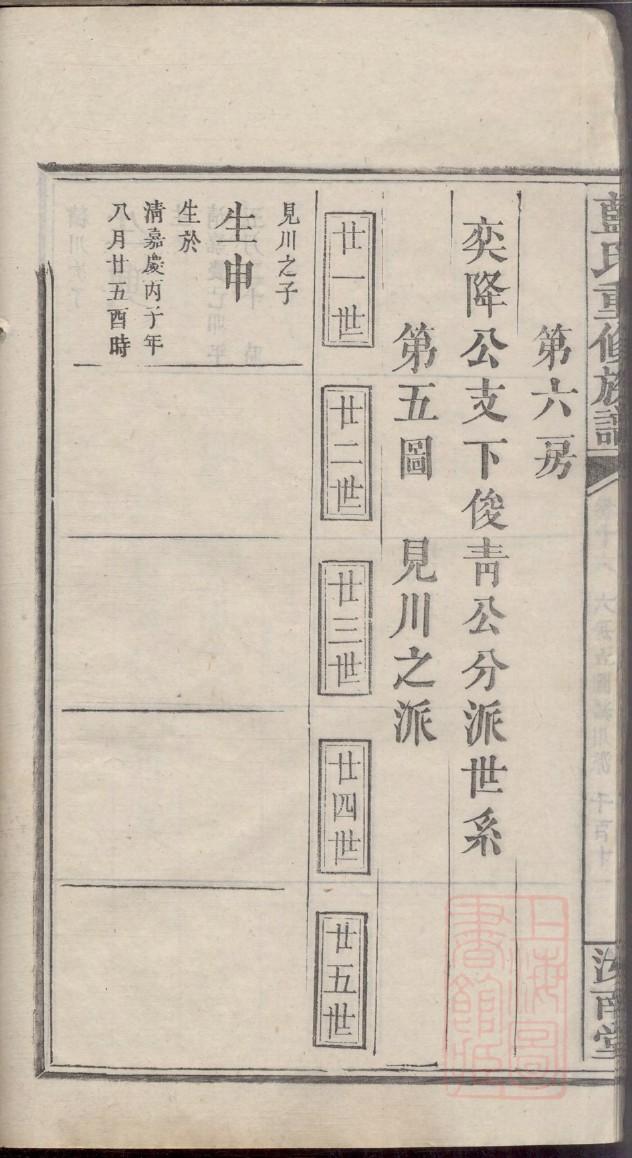 藍氏重修族譜
汝南堂
第六房
奕降公支下俊靑公分派世系
第五圖 見川之派
廿一世
廿二世
廿三世
廿四世
廿五世
見川之子
生申
生於
淸嘉慶丙子年
八月廿五酉時
上海圖書館藏